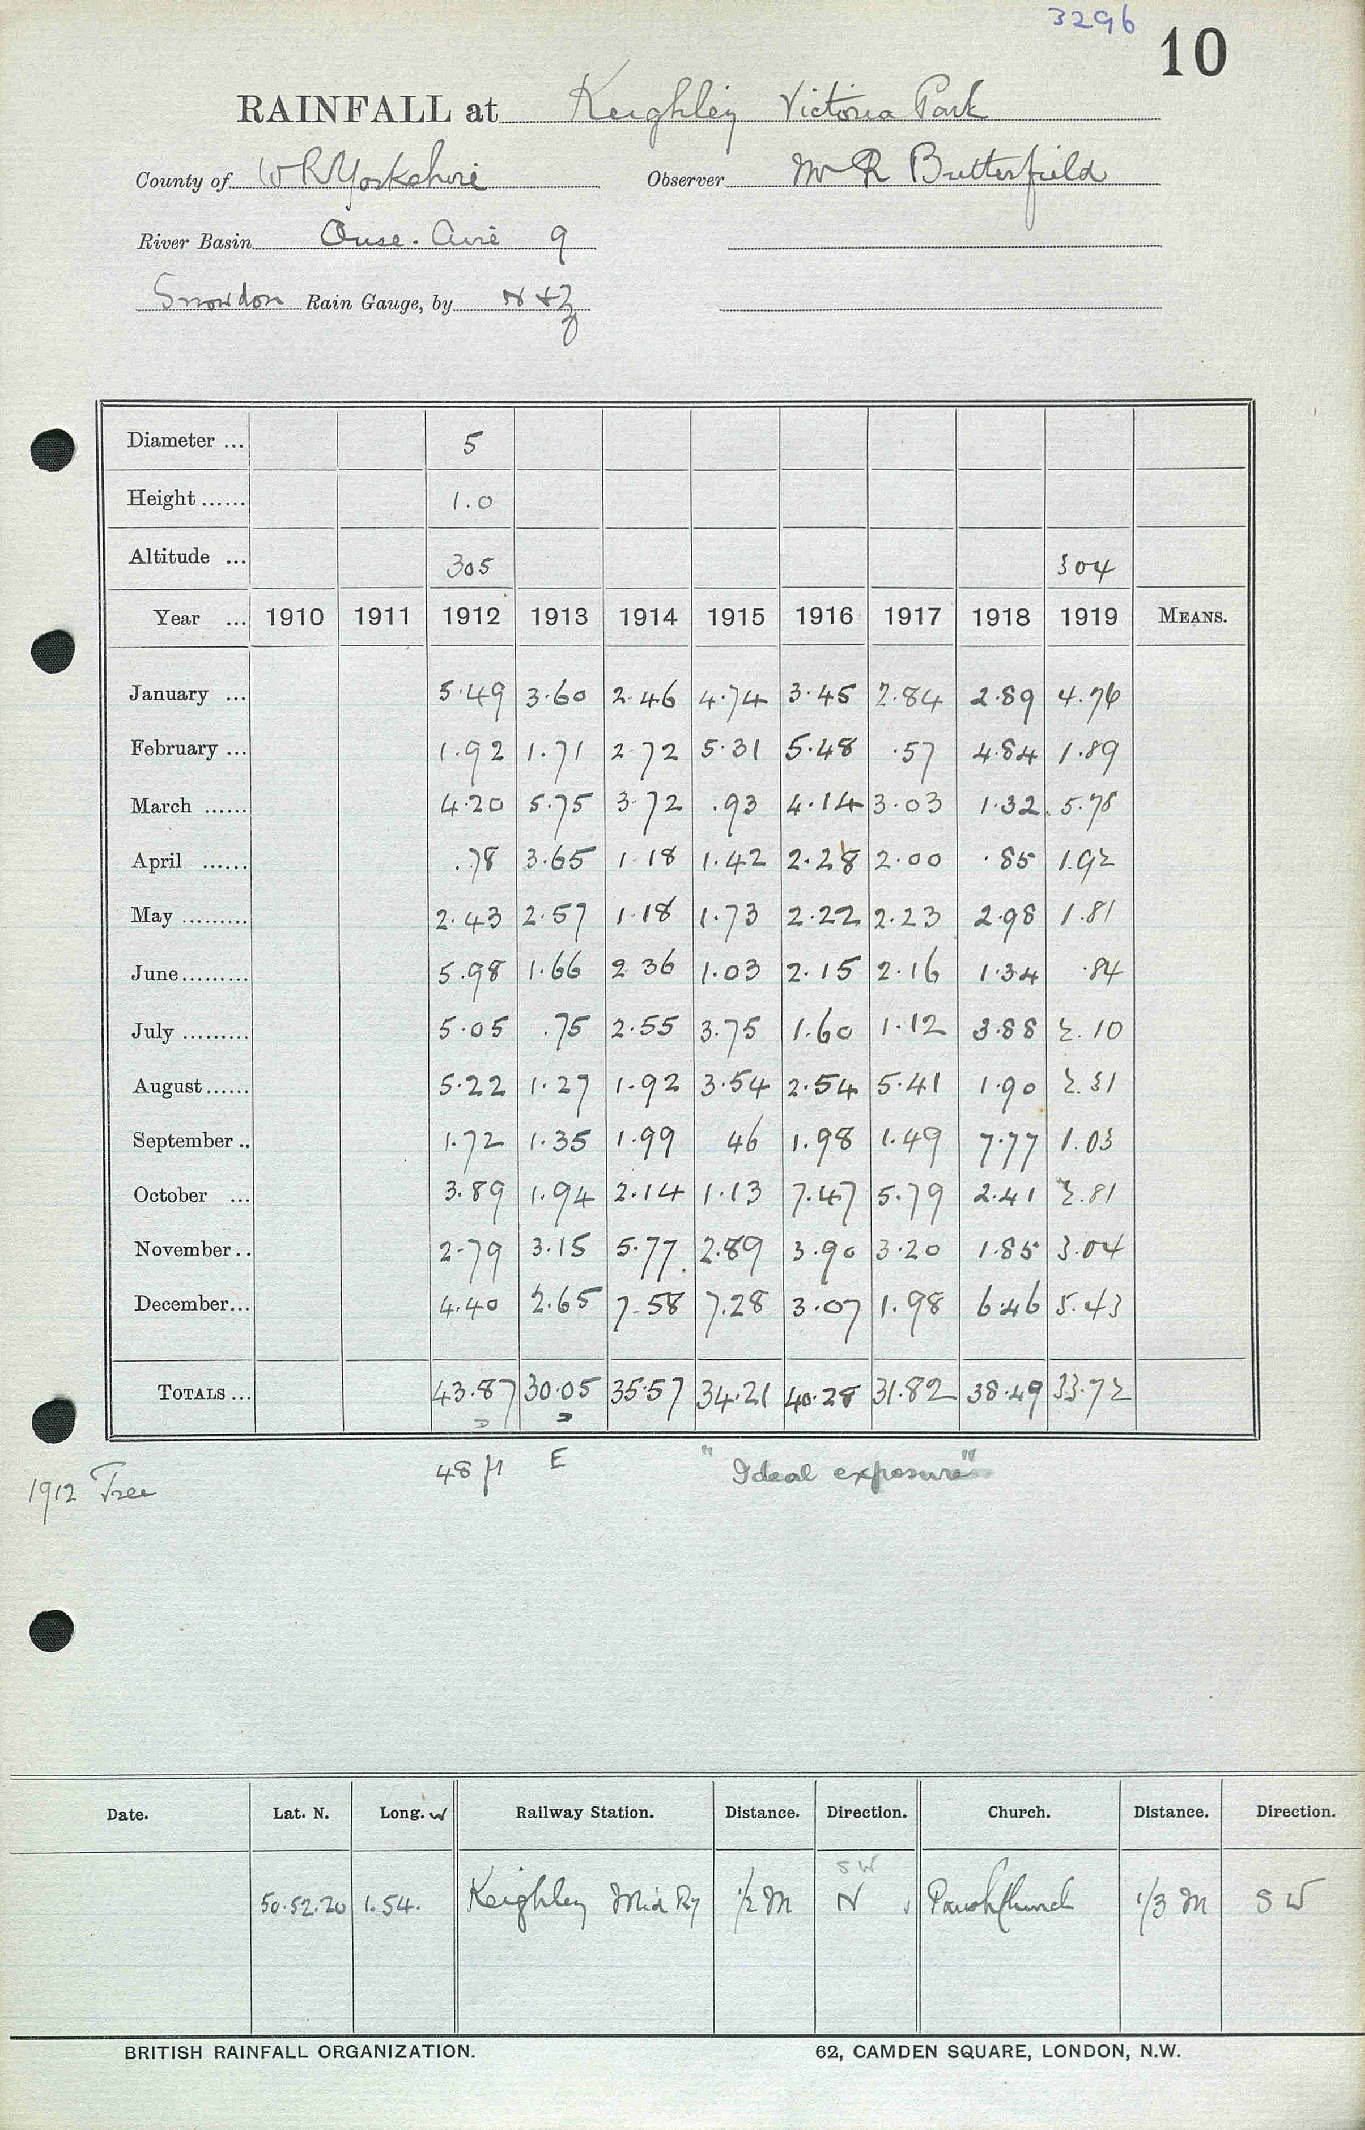 3296
10
RAINFALL at Keighley Victoria Park
County of W R Yorkshire Observer Mr R Butterfield
River Basin Ouse. Aire 9
Snowdon Rain Gauge, by N & Z
Diameter ... 5
Height ...... 1.0
Altitude ... 305 304
Year ... 1910 1911 1912 1913 1914 1915 1916 1917 1918 1919 MEANS.
January ... 5.49 3.60 2.46 4.74 3.45 2.84 2.89 4.76
February ... 1.92 1.71 2.72 5.31 5.48 .57 4.84 1.89
March ...... 4.20 5.75 3.72 .93 4.14 3.03 1.32 5.78
April ...... .78 3.65 1.18 1.42 2.28 2.00 .85 1.92
May ......... 2.43 2.57 1.18 1.73 2.22 2.23 2.98 1.81
June......... 5.98 1.66 2 36 1.03 2.15 2.16 1.34 .84
July ......... 5.05 .75 2.55 3.75 1.60 1.12 3.88 2.10
August...... 5.22 1.27 1.92 3.54 2.54 5.41 1.90 2.31
September .. 1.72 1.35 1.99 46 1.98 1.49 7.77 1.03
October ... 3.89 1.94 2.14 1.13 7.47 5.79 2.41 2.81
November.. 2.79 3.15 5.77 2.89 3.90 3.20 1.85 3.04
December... 4.40 2.65 7.58 7.28 3.07 1.98 6.46 5.43
TOTALS ... 43.87 30.05 35.57 34.21 40.28 31.82 38.49 33.72
1912 Tree 48 ft E "Ideal exposure"
Date. Lat. N. Long. W Railway Station. Distance. Direction. Church. Distance. Direction.
SW
50.52.20 1.54. Keighley Mid Ry 1/2 M N Parish Church 1/3 M SW
BRITISH RAINFALL ORGANIZATION. 62, CAMDEN SQUARE, LONDON, N.W.